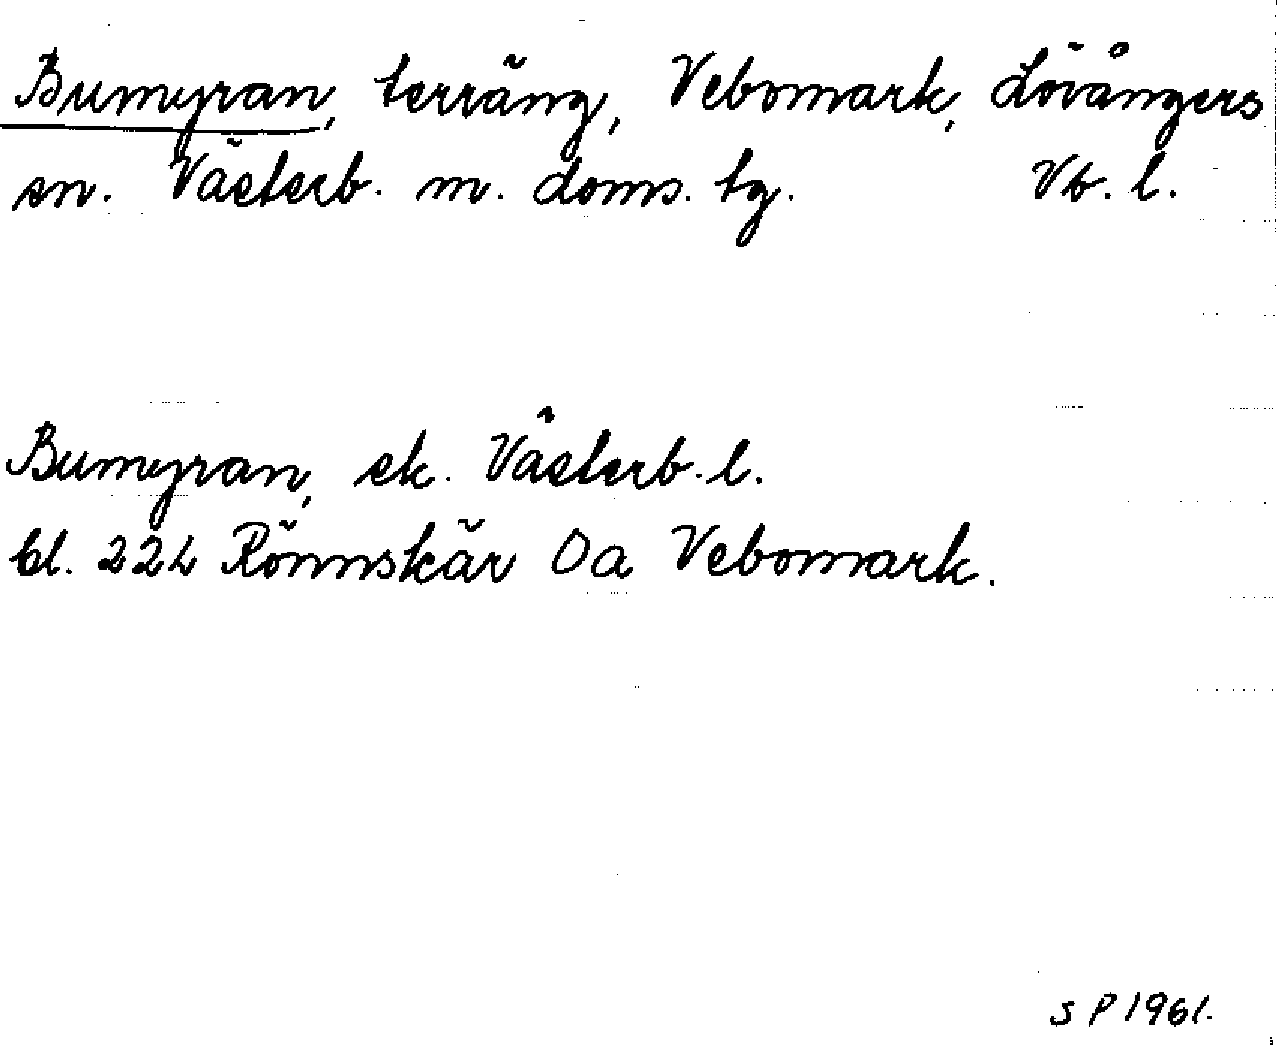 Bumyran, terräng, Vebomark, Lövångers
sn. Västerb. m. doms. tg. Vb. l.
Bumyran, ek. Västerb. l.
bl. 22L Rönnskär Oa Vebomark.
S P 1961.